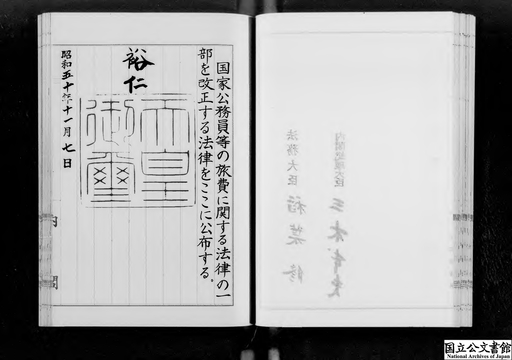 国家公務員等の旅費に関する法律の一
部を改正する法律をここに公布する。
裕仁
天皇
御璽
昭和五十年十一月七日
内閣
内閣総理大臣 三木武夫
法務大臣 稻葉修
国立公文書館
National Archives of Japan